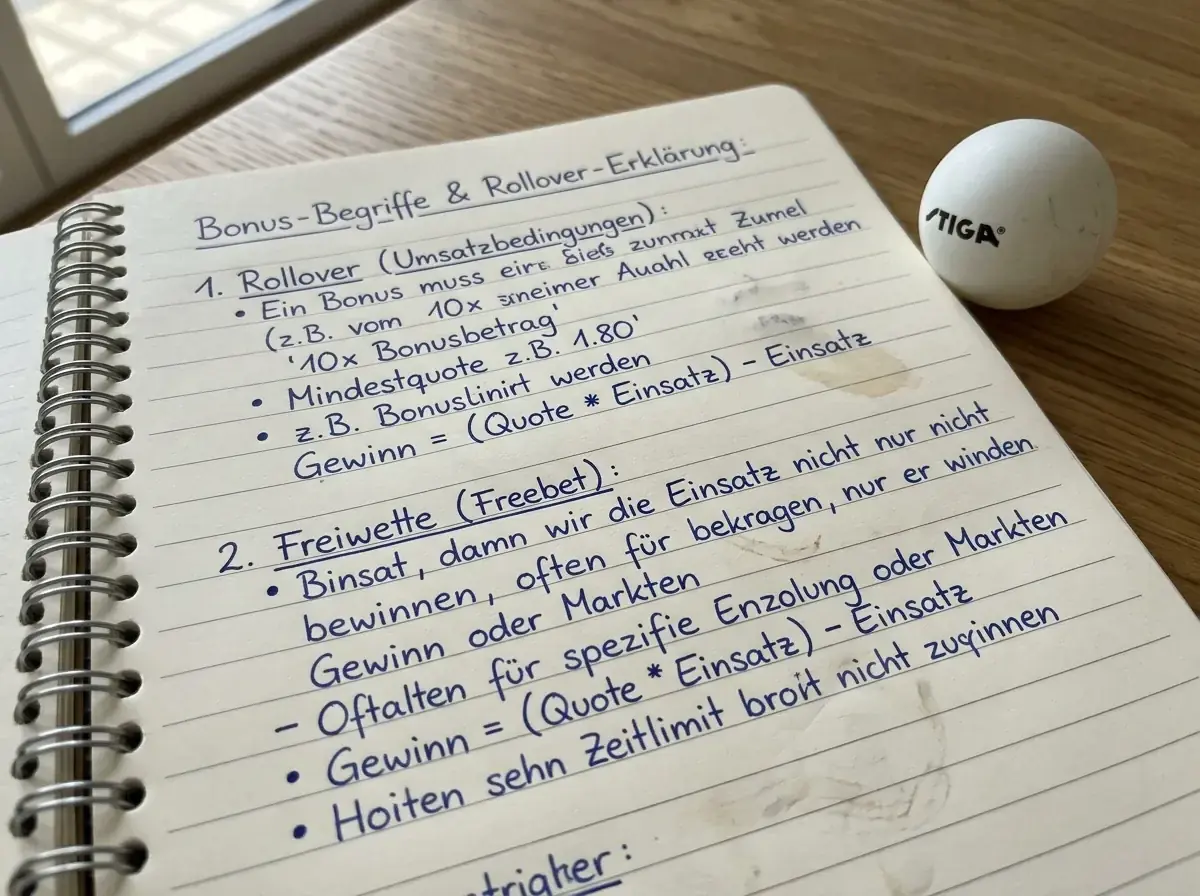 Bonus-Begriffe & Rollover-Erklärung:
1. Rollover (Umsatzbedingungen):
• Ein Bonus muss Zumel
(z.B. vom 10x werden
'10x Bonusbetrag'
• Mindestquote z.B. 1.80'
• z.B. Bonuslinirt werden
Gewinn = (Quote * Einsatz) - Einsatz
2. Freiwette (Freebet):
• Binsat, damn wir die Einsatz nicht nur nicht
bewinnen, often für bekragen, nur er winden
Gewinn oder Markten
- Oftalten für spezifie Enzolung oder Markten
• Gewinn = (Quote * Einsatz) - Einsatz
• Hoiten sehn Zeitlimit nicht
STIGA®